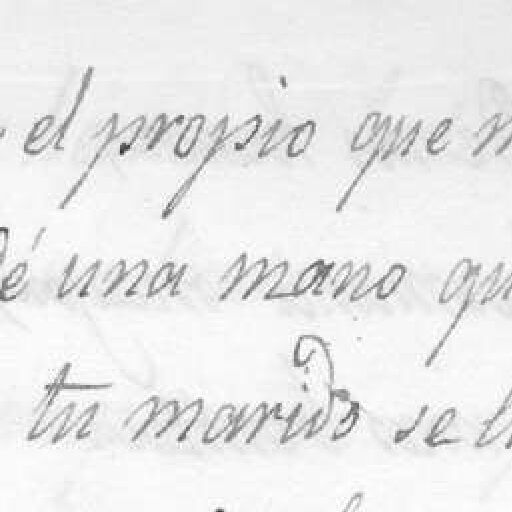 el propio que
dé una mano
tu marido se